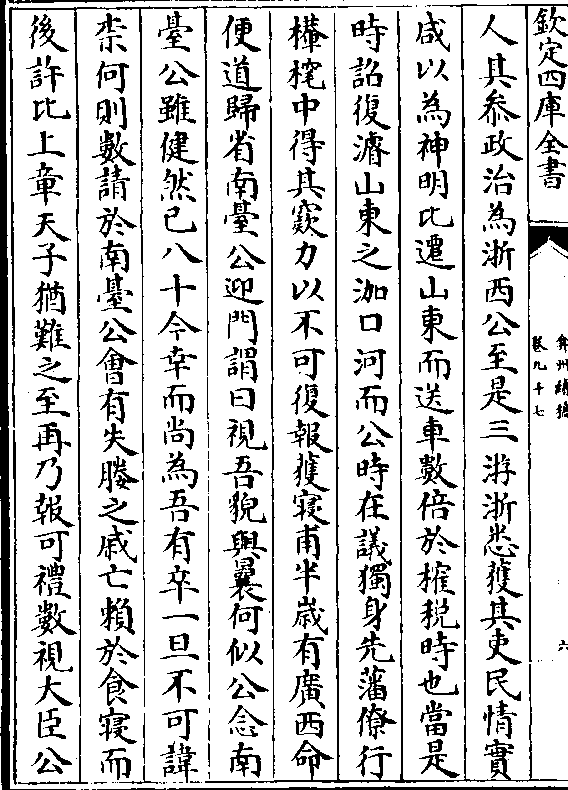 欽定四庫全書
人其叅政治為浙西公至是三游浙悉獲其吏民情實
咸以為神明比遷山東而送車數倍於榷税時也當是
時詔復濬山東之泇口河而公時在議獨身先藩僚行
樏橇中得其窾力以不可復報獲寢甫半嵗有廣西命
便道歸省南臺公迎門謂曰視吾貌與曩何似公念南
臺公雖健然已八十今幸而尚為吾有卒一旦不可諱
柰何則數請於南臺公會有失媵之戚亡賴於食寢而
後許比上章天子猶難之至再乃報可禮數視大臣公
弇州續稿
卷九十七
六